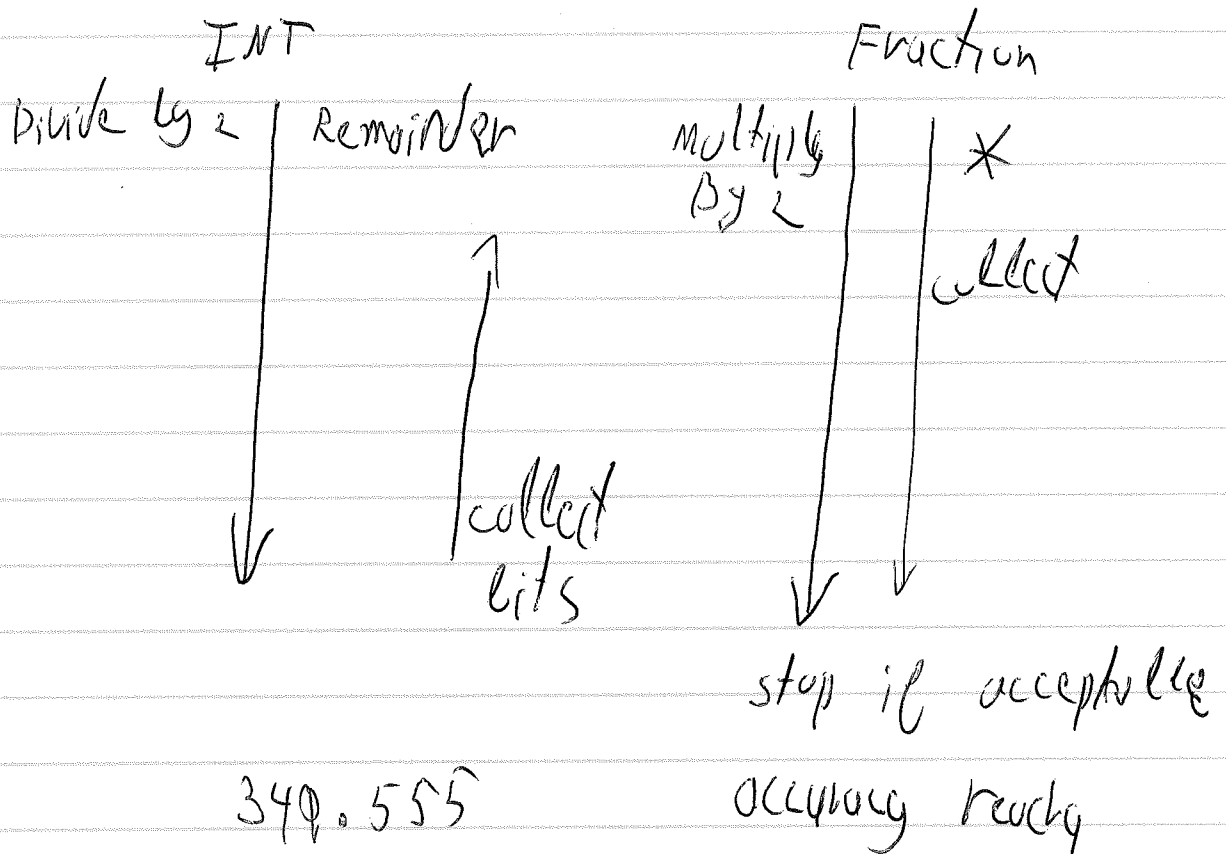 INT
Divide by 2 Remainder
collect
bits
Fraction
Multiply
By 2
*
collect
stop if acceptable
accuracy
349.555